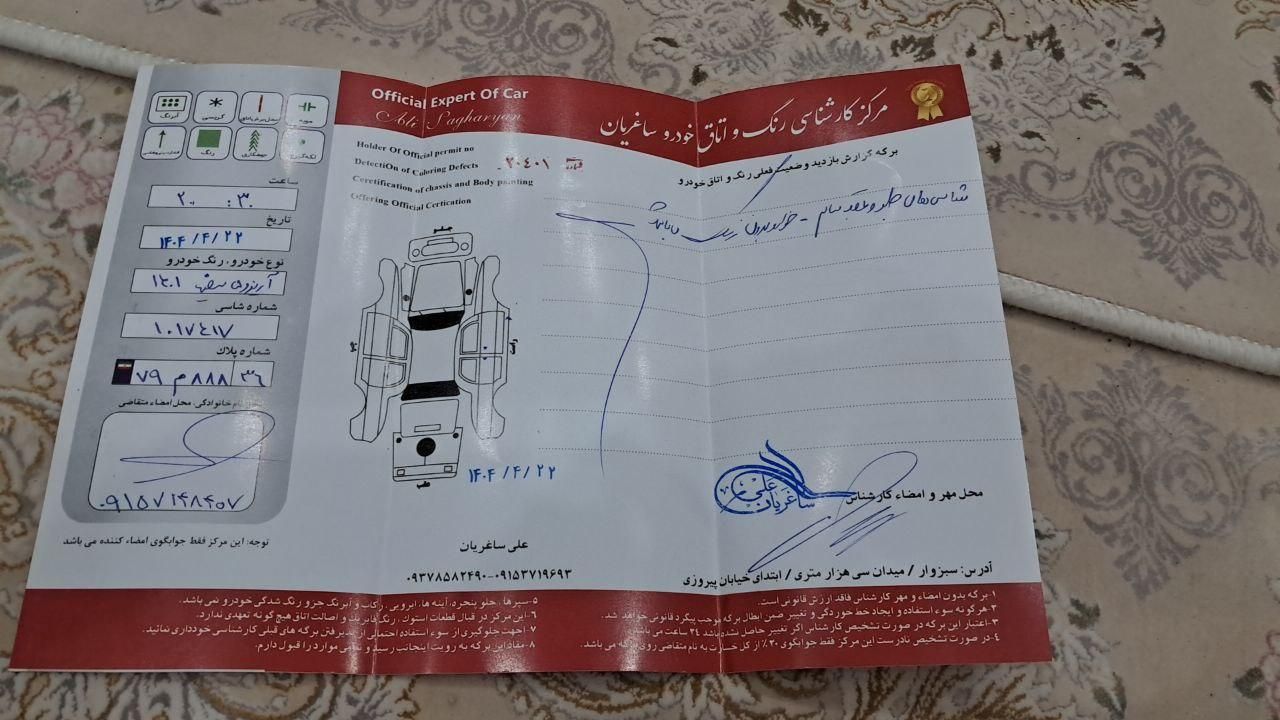 مرکز کارشناسی رنگ و اتاق خودرو ساغریان
Official Expert Of Car
Ali Sagharyan
برگه گزارش بازدید وضعیت فعلی رنگ و اتاق خودرو
Holder Of Official permit no
DetectiOn of Coloring Defects
Ceretification of chassis and Body painting
Offering Official Certication
۲۰۴۰۱
شناسی های جلو و عقب سالم - خودرو بدون رنگ میباشد
آبرنگ
رنگ
ساعت
۲۰ : ۳۰
تاریخ
۱۴۰۴/۴/۲۲
نوع خودرو، رنگ خودرو
سفید ۱۴۰۱
شماره شاسی
۱۰۱۷۴۱۷
شماره پلاک
۷۹ م ۸۸۸ ۳۶
نام خانوادگی، محل امضاء متقاضی
۰۹۱۵۷۱۴۸۴۵۷
توجه: این مرکز فقط جوابگوی امضاء کننده می باشد
جلو
راست
چپ
عقب
۱۴۰۴/۴/۲۲
علی ساغریان
۰۹۳۷۸۵۸۲۴۹۰-۰۹۱۵۳۷۱۹۶۹۳
محل مهر و امضاء کارشناس
علی ساغریان
آدرس: سبزوار / میدان سی هزار متری / ابتدای خیابان پیروزی
۱-برگه بدون امضاء و مهر کارشناس فاقد ارزش قانونی است.
۲-هر گونه سوء استفاده و ایجاد خط خوردگی و تغییر ضمن ابطال برگه موجب پیگرد قانونی خواهد شد.
۳-اعتبار این برگه در صورت تشخیص کارشناس اگر تغییر حاصل نشده باشد ۲۴ ساعت می باشد.
۴-در صورت تشخیص نادرست این مرکز فقط جوابگوی ۲۰٪ از کل خسارت به نام متقاضی روی برگه می باشد.
۵-سپرها، جلو پنجره، آینه ها، ابرویی، رکاب و آبرنگ جزو رنگ شدگی خودرو نمی باشد.
۶-این مرکز در قبال قطعات استوک، رنگ فابریک و اصالت اتاق هیچ گونه تعهدی ندارد.
۷-جهت جلوگیری از سوء استفاده احتمالی از پذیرفتن برگه های قبلی کارشناسی خودداری نمائید.
۸-مفاد این برگه به رویت اینجانب رسید و تمامی موارد را قبول دارم.